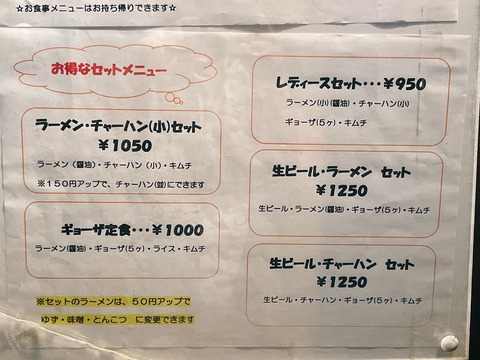 ☆お食事メニューはお持ち帰りできます☆
お得なセットメニュー
ラーメン・チャーハン(小)セット
￥1050
ラーメン（醤油）・チャーハン（小）・キムチ
※１５０円アップで、チャーハン(並)にできます
ギョーザ定食・・・￥1000
ラーメン(醤油)・ギョーザ(５ヶ)・ライス・キムチ
※セットのラーメンは、５０円アップで
ゆず・味噌・とんこつ　に変更できます
レディースセット・・・￥950
ラーメン(小)(醤油)・チャーハン(小)
ギョーザ(５ヶ)・キムチ
生ビール・ラーメン　セット
￥1250
生ビール・ラーメン(醤油)・ギョーザ(５ヶ)・キムチ
生ビール・チャーハン　セット
￥1250
生ビール・チャーハン・ギョーザ(５ヶ)・キムチ